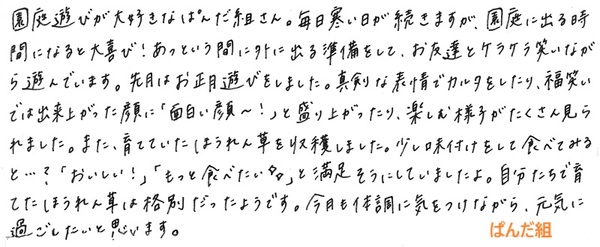 園庭遊びが大好きなぱんだ組さん。毎日寒い日が続きますが、園庭に出る時
間になると大喜び！あっという間に外に出る準備をして、お友達とケラケラ笑いなが
ら遊んでいます。先月はお正月遊びをしました。真剣な表情でカルタをしたり、福笑い
では出来上がった顔に「面白い顔〜！」と盛り上がったり、楽しむ様子がたくさん見ら
れました。また、育てていたほうれん草を収穫しました。少し味付けをして食べてみる
と…？「おいしい！」「もっと食べたい☆」と満足そうにしていましたよ。自分たちで育
てたほうれん草は格別だったようです。今月も体調に気をつけながら、元気に
過ごしたいと思います。 ぱんだ組